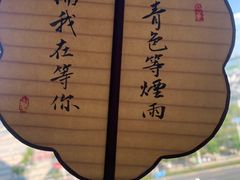 青色等煙雨
我在等你